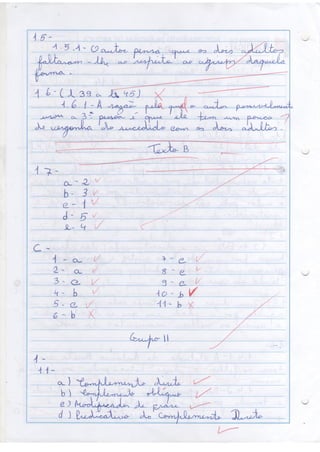 1.5-
1.5.1- O autor pensa que os dois adultos
faltaram-lhe ao respeito ao agirem daquela
forma.
1.6-(l 39 a 45)
1.6.1-A razão pela qual o autor possivelment
usou a 3ª pessoa é que ele tem um pouco ?
de vergonha do sucedido com os dois adultos.
Texto B
1.7-
a-2
b-3
c-1
d-5
e-4
C-
1-a 7-c
2-a 8-c
3-c 9-a
4-b 10-b
5-c 11-b
6-b
Grupo II
1-
1.1-
a) Complemento direto
b) Complemento oblíquo
c) Modificador de frase
d) Predicativo do Complemento Direto